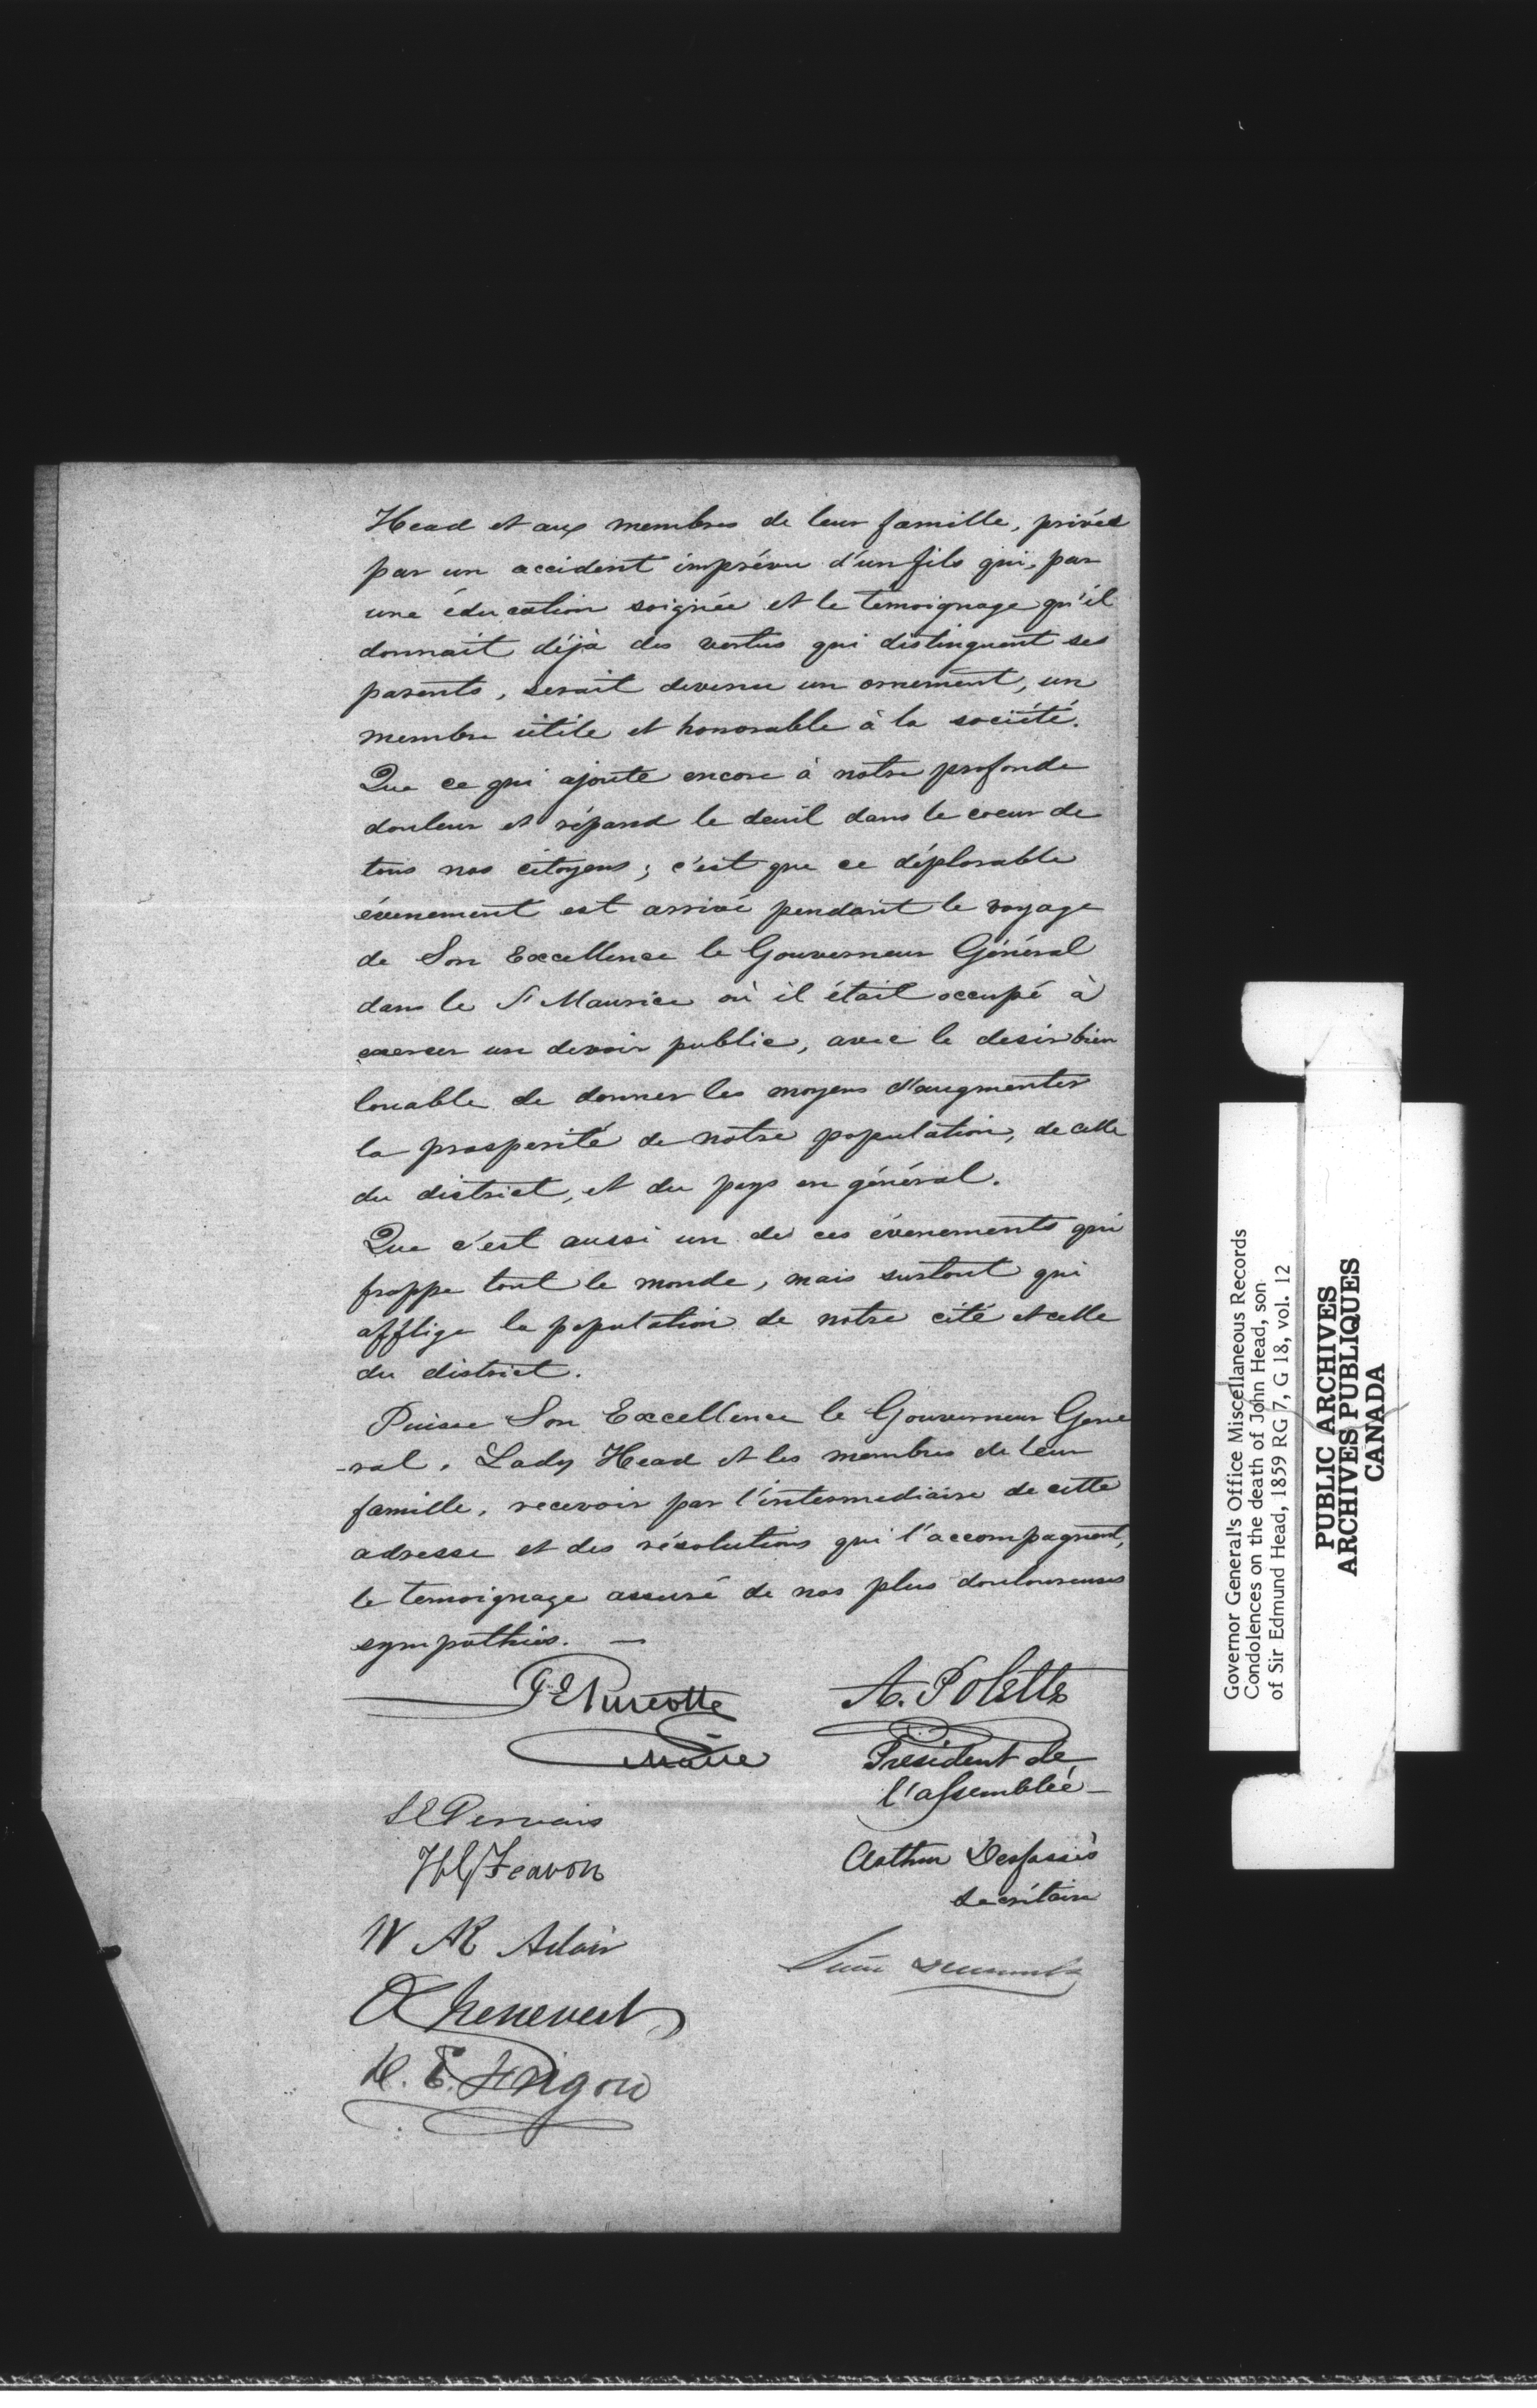 Head et aux membres de leur famille, privés
par un accident imprévu d'un fils qui, par
une éducation soignée et le temoignage qu'il
donnait déjà des vertus qui distinguent ses
parents, serait devenu un ornement, un
membre utile et honorable à la société.
Que ce qui ajoute encore à notre profonde
douleur et répand le deuil dans le coeur de
tous nos citoyens; c'est que ce déplorable
évenement est arrivé pendant le voyage
de Son Excellence le Gouverneur Général
dans le St Maurice où il était occupé à
exercer un devoir public, avec le desir bien
louable de donner les moyens d'augmenter
la prosperité de notre population, de celle
du district, et du pays en général.
Que c'est aussi un de ces évenements qui
frappe tout le monde, mais surtout qui
afflige la population de notre cité et celle
du district.
Puisse Son Excellence le Gouverneur Gene
-ral, Lady Head et les membres de leur
famille, recevoir par l'intermediaire de cette
adresse et des résolutions qui l'accompagnent,
le temoignage assuré de nos plus douloureuses
sympathies. —
J E Turcotte
Maire
A. Polette
President de
l'assemblée
L E Gervais
Arthur Desfossés
Secrétaire
W R Adair
O Chenevert
D. E. Frigon
Governor General's Office Miscellaneous Records
Condolences on the death of John Head, son
of Sir Edmund Head, 1859 RG 7, G 18, vol. 12
PUBLIC ARCHIVES
ARCHIVES PUBLIQUES
CANADA